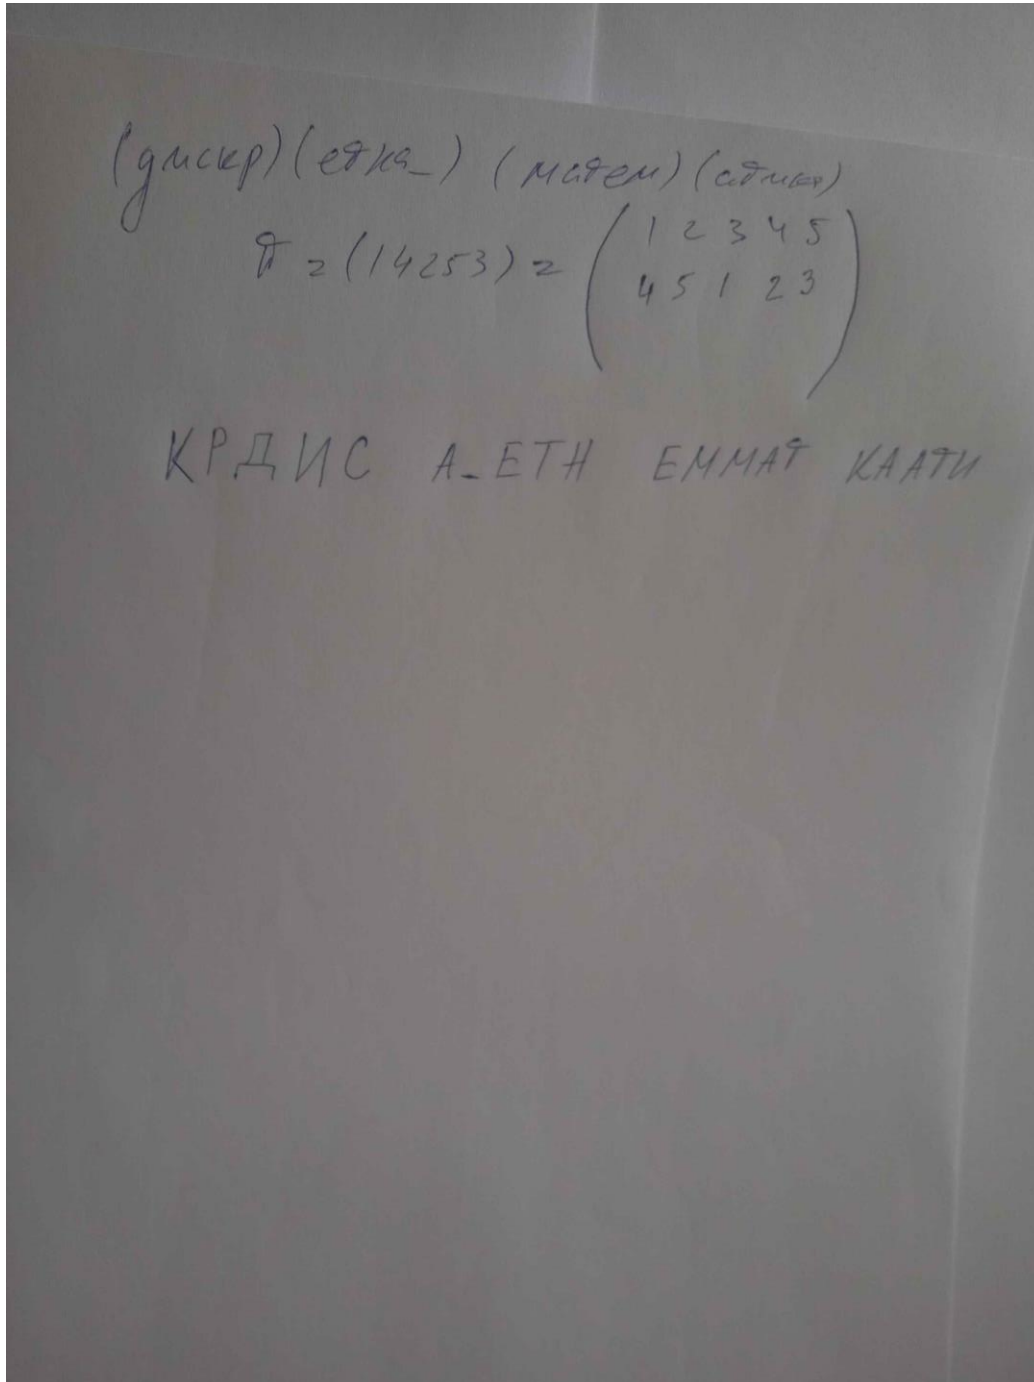 (дискр) (етна_) (матем) (атика)
π = (14253) = ( 1 2 3 4 5
4 5 1 2 3 )
КРДИС А_ЕТН ЕММАТ КААТИ